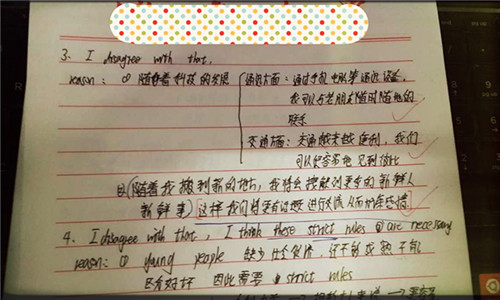 3. I disagree with that,
reason: ① 随着科技的发展 通迅方面:通过手机电脑等通迅设备,
我可以与老朋友随时随地的
联系
交通方面:交通越来越便利,我们
可以很容易地见到彼此
②(随着我搬到新的地方,我将会接触到更多的新鲜人
新鲜事)这样我们将更有话题进行交流从而加深感情
4. I disagree with that, I think these strict rules are necessary
reason: ① young people 缺少社会
因此需要 strict rules